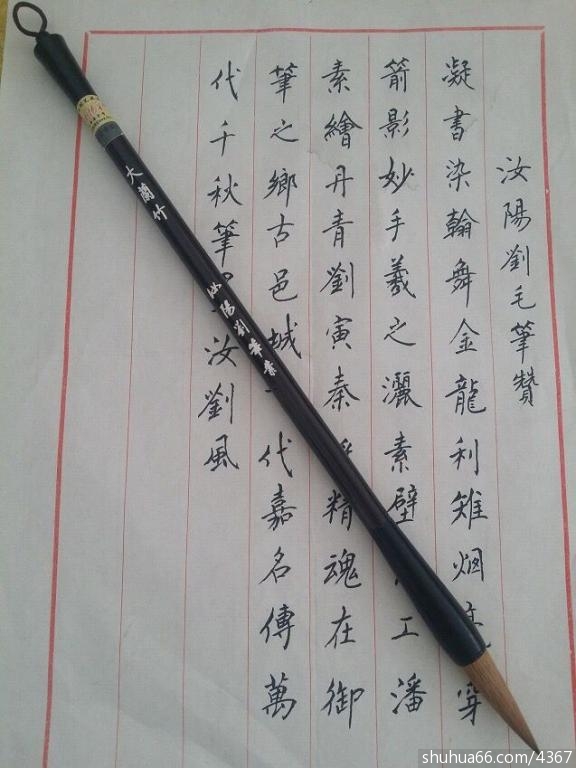 汝陽劉毛筆贊
凝書染翰舞金龍利雉烟穿
箭影妙手羲之灑素壁工潘
素繪丹青劉寅秦精魂在御
筆之鄉古邑城代嘉名傳萬
代千秋筆汝劉風
大蘭竹
汝陽劉筆業
shuhua66.com/4367